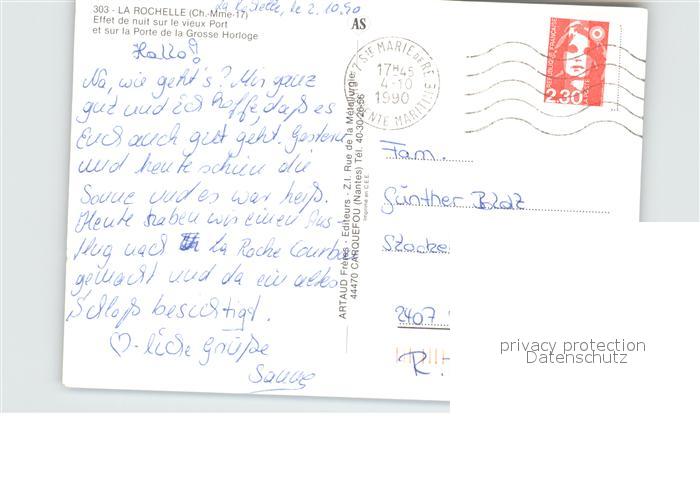 La Rochelle, de 2.10.90
303 - LA ROCHELLE (Ch.-Mme-17)
Effet de nuit sur le vieux Port
et sur la Porte de la Grosse Horloge
Hallo!
Na, wie geht's? Mir ganz
gut und ich hoffe, daß es
Euch auch gut geht. Gestern
und heute schien die
Sonne und es war heiß.
Heute haben wir einen Aus-
flug nach La Roche Courbon
gemacht und da ein altes
Schloß besichtigt.
♡-liche Grüße
Sanne
AS
ARTAUD Frères - Editeurs - Z.I. Rue de la Métallurgie
44470 CARQUEFOU (Nantes) Tél. 40-30-26-66
Imprimé en C.E.E.
17 STE MARIE DE RE
17H45
4-10
1990
CHARENTE MARITIME
REPUBLIQUE FRANÇAISE
2,30
Fam.
Günther
2407
R.
privacy protection
Datenschutz